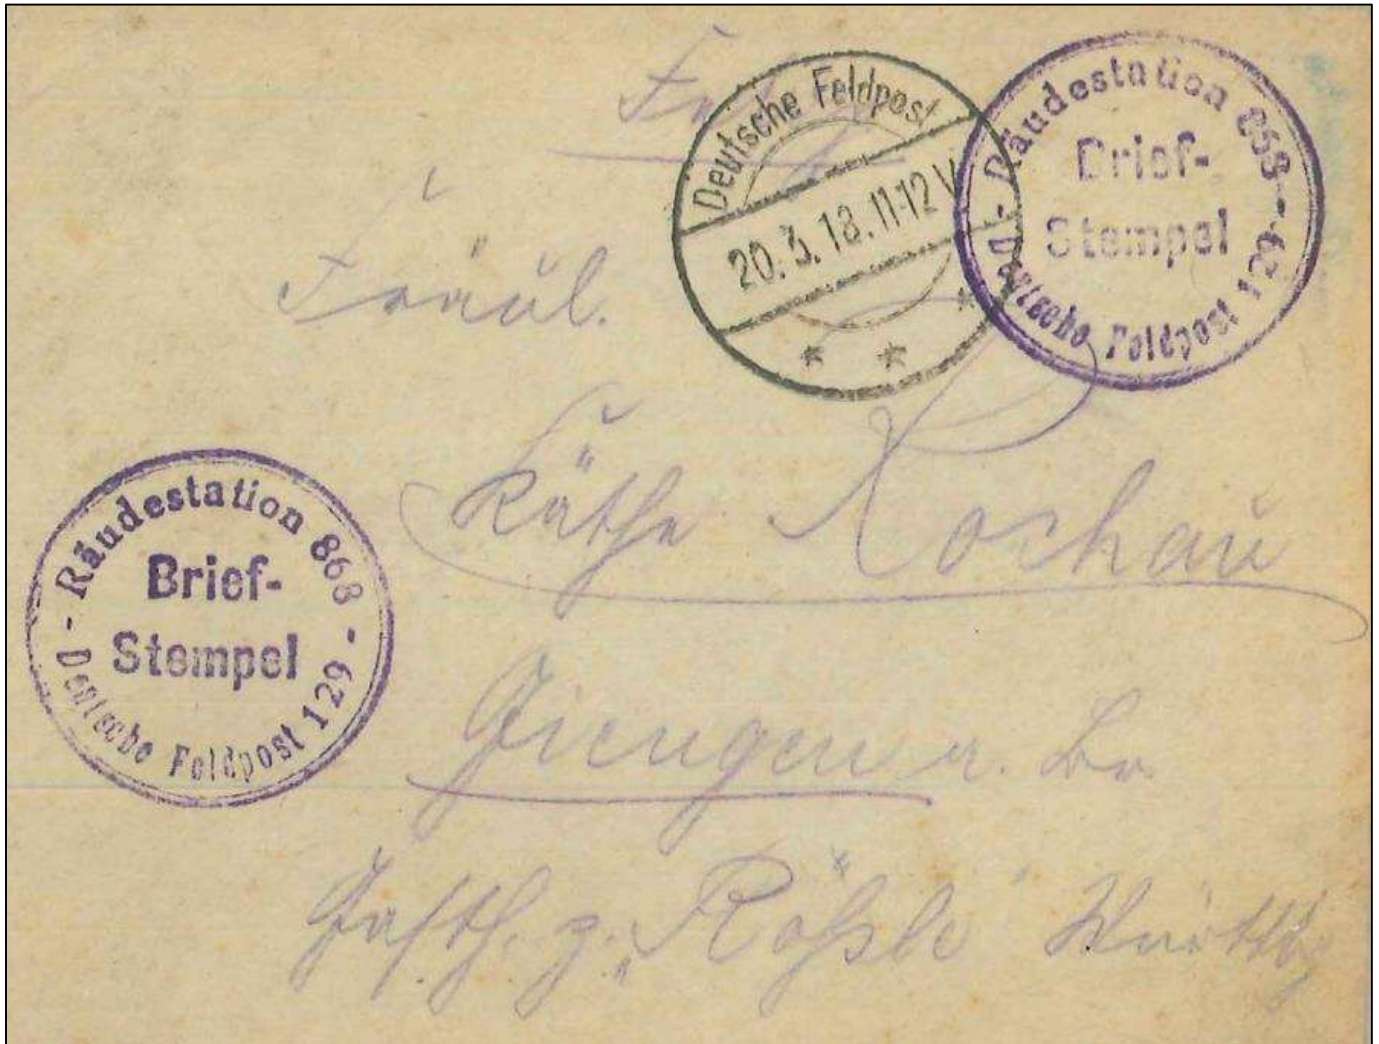 Deutsche Feldpost
20.3.18.11-12V
* * *
- Räudestation 868 -
Brief-
Stempel
Deutsche Feldpost 129
Fräul.
Käthe Rochau
- Räudestation 868 -
Brief-
Stempel
Deutsche Feldpost 129
Giengen a. Br.
Gasth. z. „Rößle“ Württbg